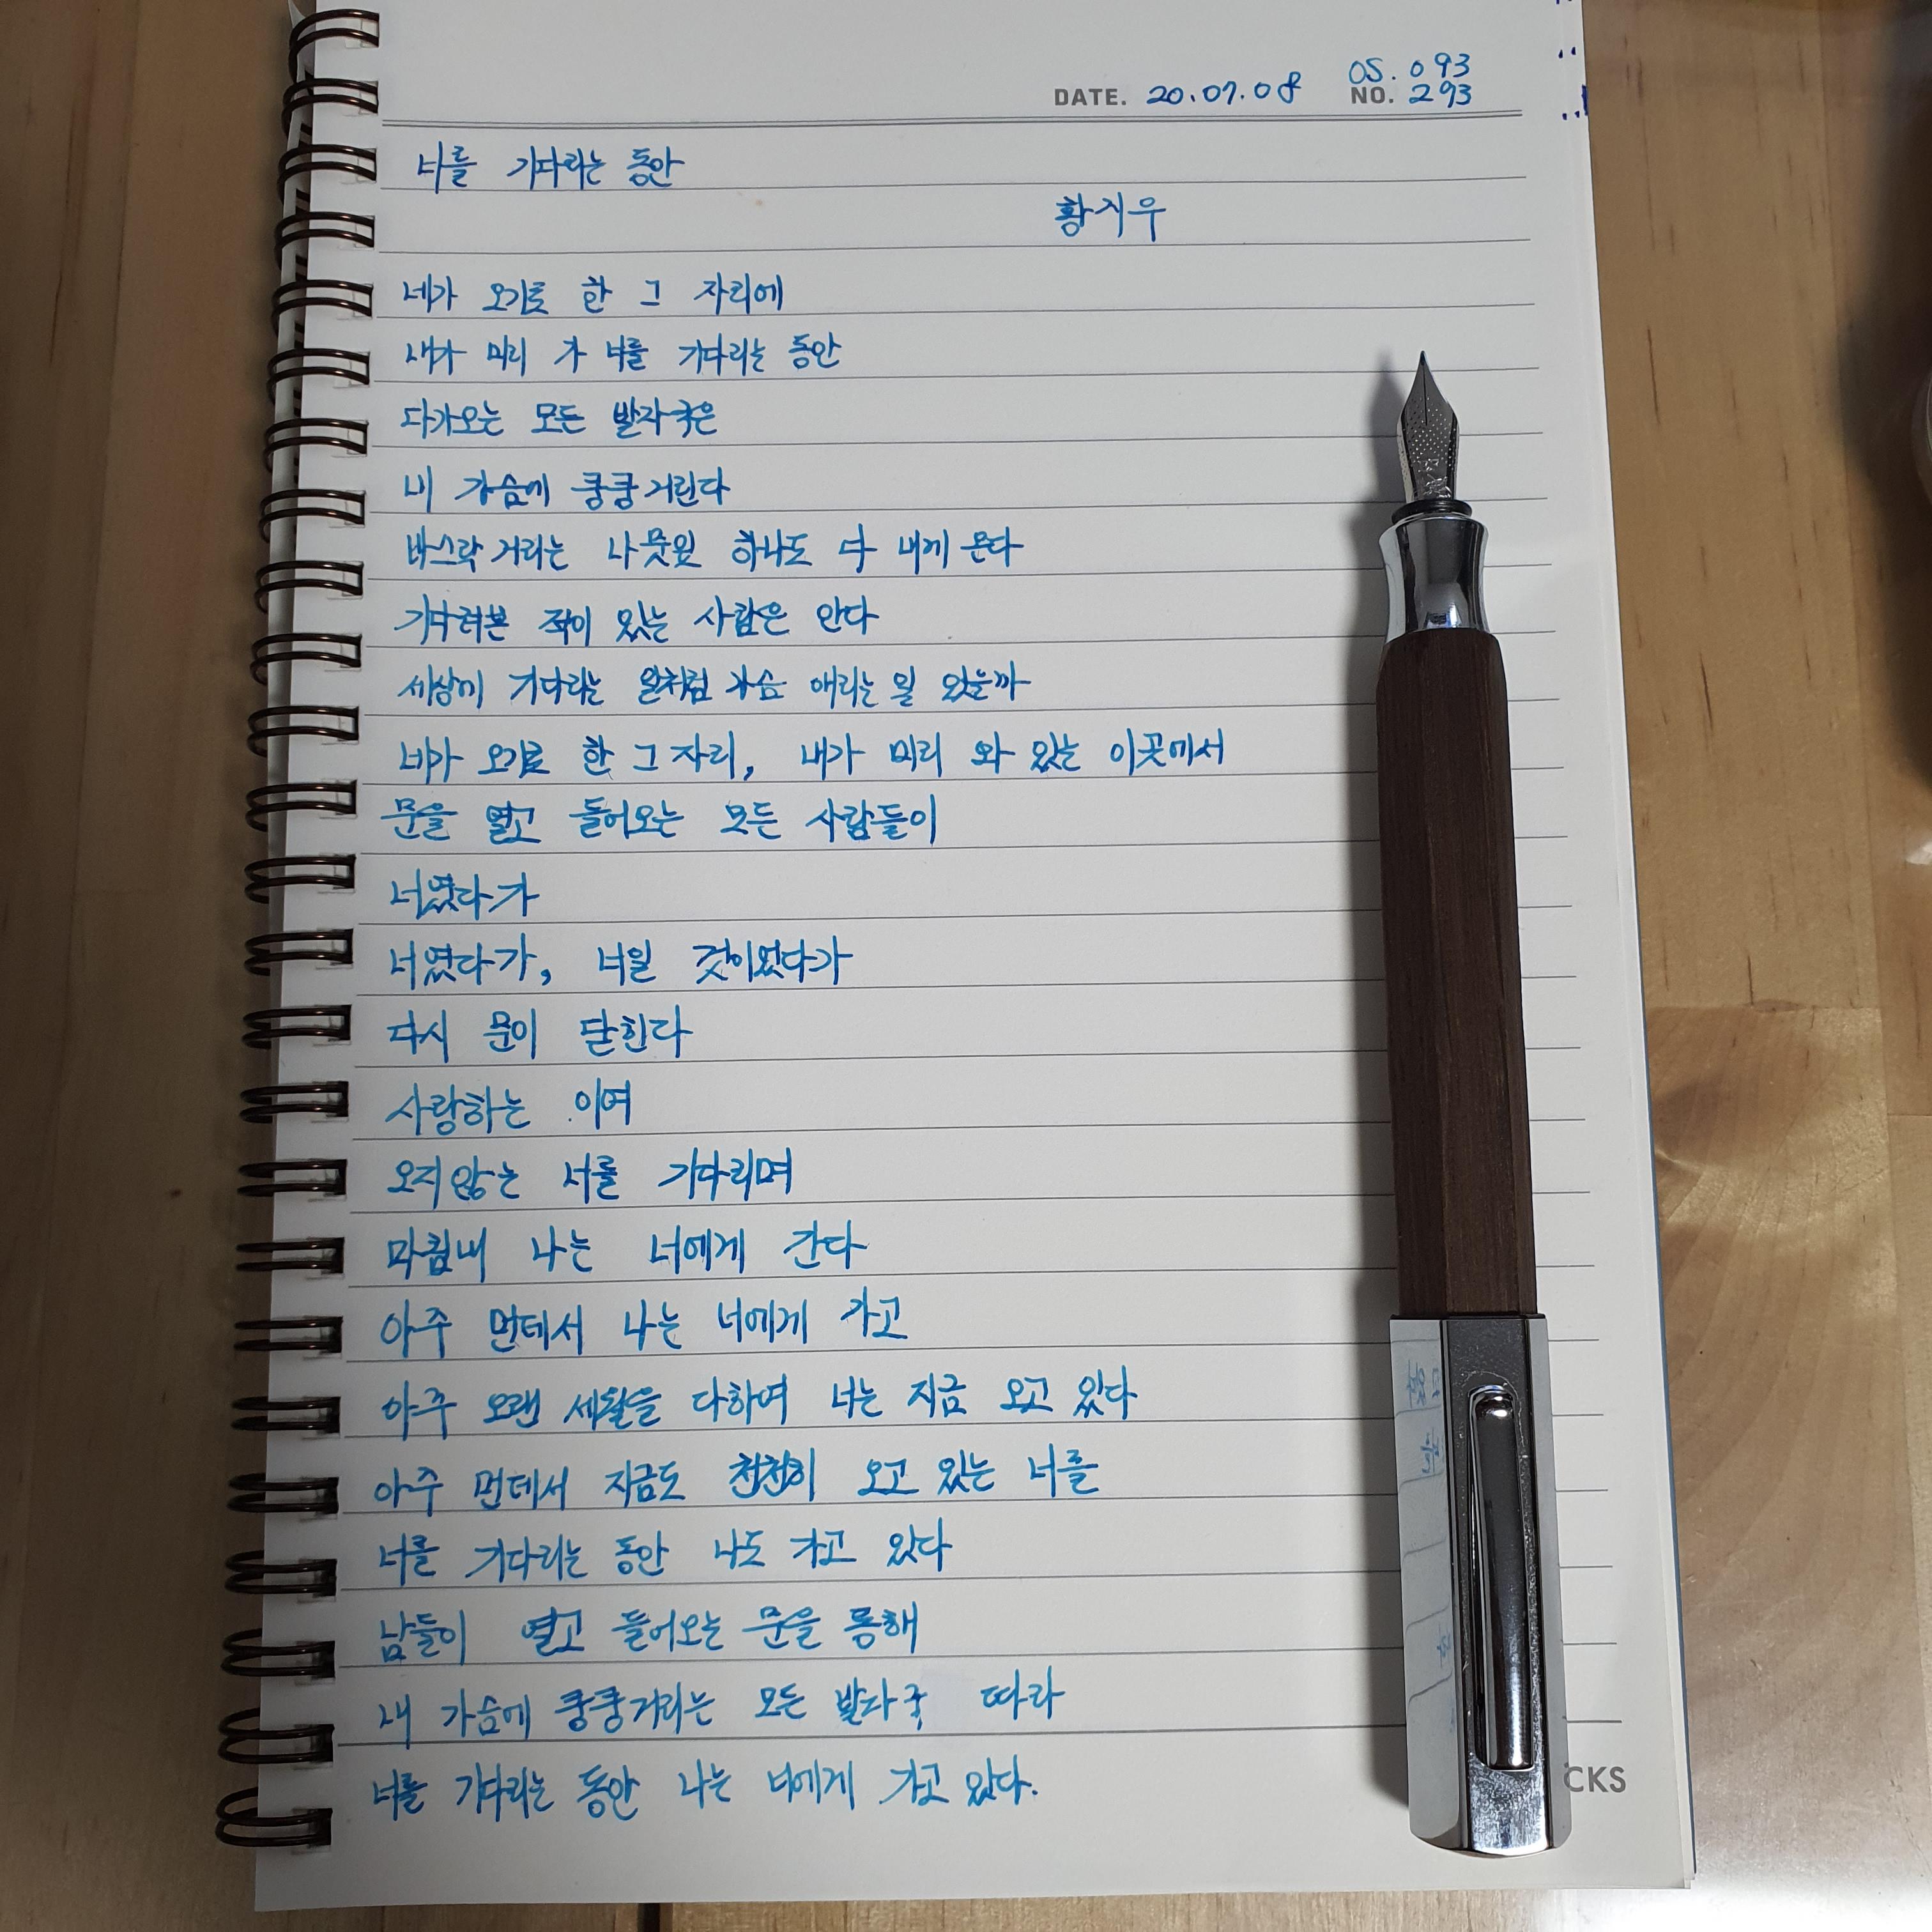 OS. 093
DATE. 20.07.08 NO. 293
너를 기다리는 동안
황지우
네가 오기로 한 그 자리에
내가 미리 가 너를 기다리는 동안
다가오는 모든 발자국은
내 가슴에 쿵쿵거린다
바스락 거리는 나뭇잎 하나도 다 내게 온다
기다려본 적이 있는 사람은 안다
세상에 기다리는 일처럼 가슴 애리는 일 있는까
네가 오기로 한 그 자리, 내가 미리 와 있는 이곳에서
문을 열고 들어오는 모든 사람들이
너였다가
너였다가, 너일 것이었다가
다시 문이 닫힌다
사랑하는 이여
오지 않는 너를 기다리며
마침내 나는 너에게 간다
아주 먼데서 나는 너에게 가고
아주 오랜 세월을 다하여 너는 지금 오고 있다
아주 먼데서 지금도 천천히 오고 있는 너를
너를 기다리는 동안 나도 가고 있다
남들이 열고 들어오는 문을 통해
내 가슴에 쿵쿵거리는 모든 발자국 따라
너를 기다리는 동안 나는 너에게 가고 있다.
CKS